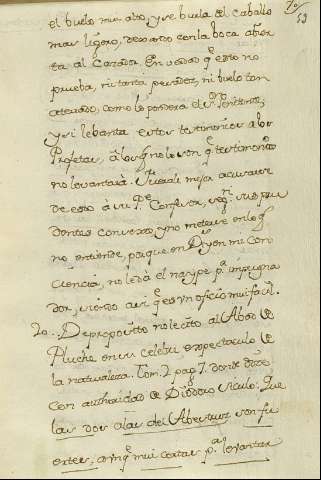 70
53
el buelo mui alto, y se burla del caballo
mas ligero, dexando con la boca abier
ta al Cazador. En verdad q esto no
prueba, ni tanta pesadez, ni buelo tan
atexado, como lo pondera el Sr. Penitente,
y si lebanta estos testimonios a los
Profetas, a los q no lo son q testimonios
no levantará. Fuerale mejor acusarse
de esto à su Pe. Confesor, segn. sus pru
dentes consexos, y no meterse en lo q
no entiende, porque en Dios y en mi con
ciencia, no le dà el naype pa. impugna
dor, siendo assi q es un oficio mui facil.
20.. De proposito no le cito al Abad de
Pluche en su celebre espectaculo de
la naturaleza. Tom. 2 pag. 7. donde dice
con authoridad de Diodoro Siculo: Que
las dos alas del Abestruz son fu
ertes, aunq mui cortas pa. levantar